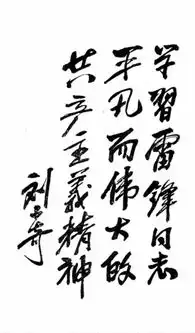 学習雷锋同志
平凡而伟大的
共产主義精神
刘少奇